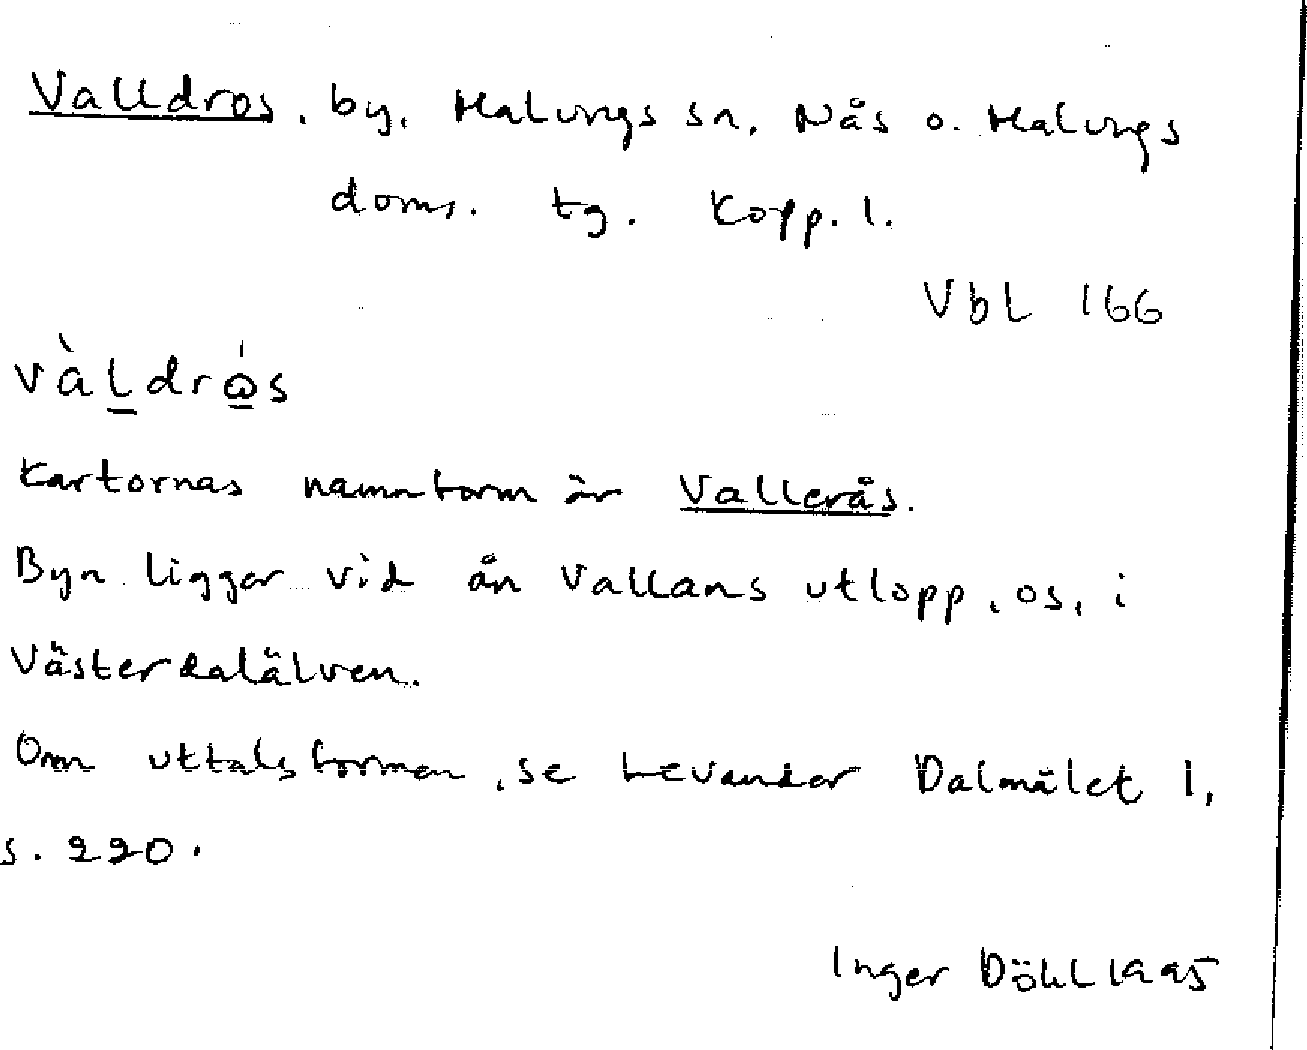 Valldros, by, Malungs sn, Nås o. Malungs
doms. tg. Kopp. l.
Vbl 166
Kartornas namnform är Vallerås.
Byn ligger vid ån Vallans utlopp, os, i
Västerdalälven.
Om uttalsformen, se Levander Dalmålet 1,
s. 220.
Inger Döhl 1995